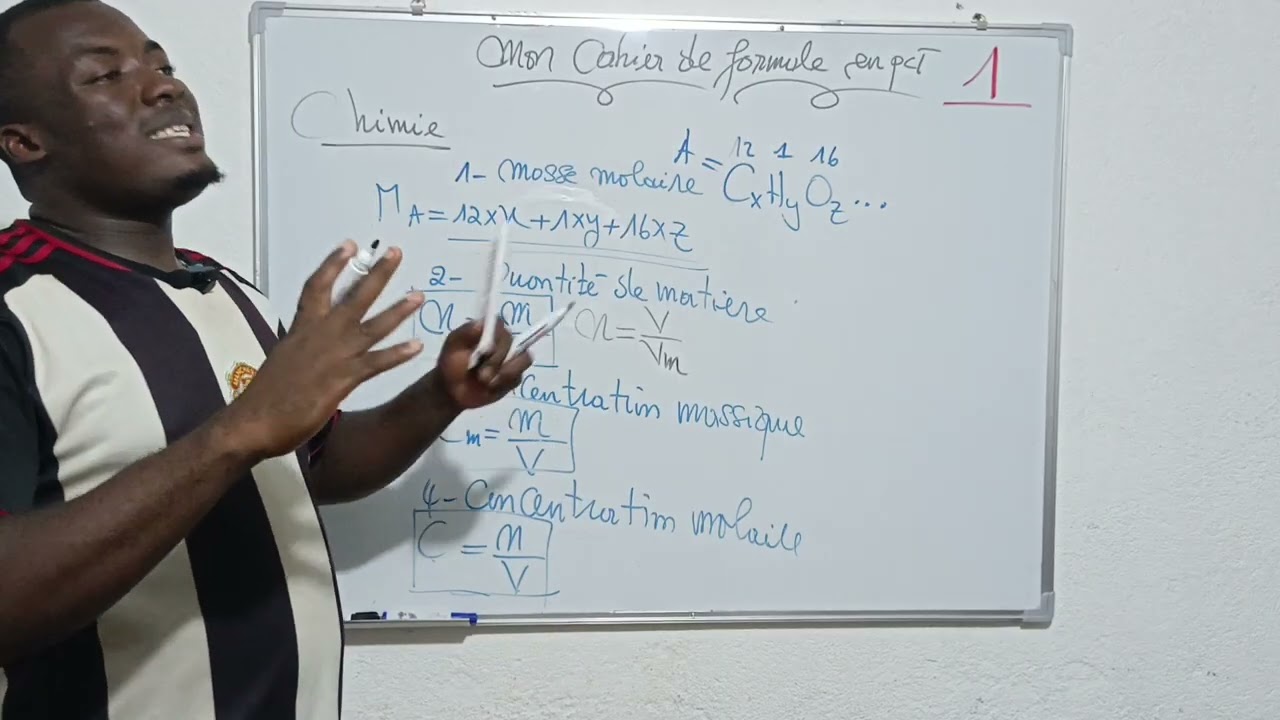 Mon Cahier de formule en pct 1
Chimie
12 1 16
1- Masse molaire A = CxHyOz...
MA = 12xx + 1xy + 16xz
2- Quantité de matière
n = m n = V/Vm
centration massique
Cm = m/V
4- Concentration molaire
C = n/V